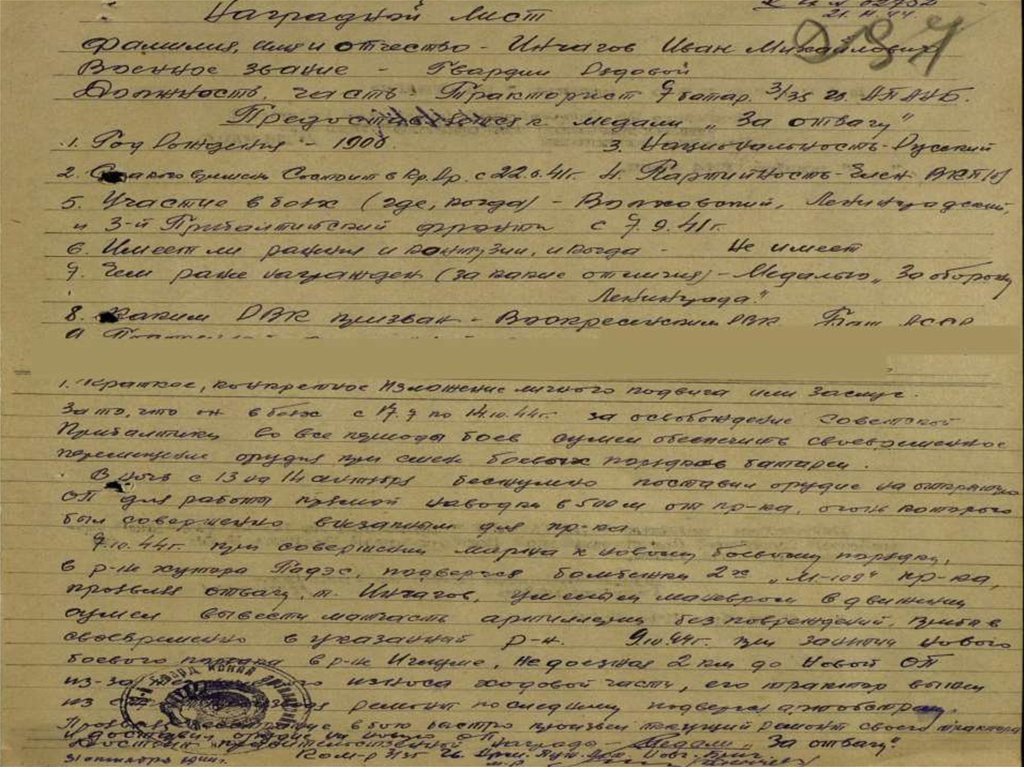 Наградной лист
21.11.44
Фамилия, имя и отчество - Инчагов Иван Михайлович
Военное звание - Гвардии Рядовой
Должность, часть Тракторист 7 батар. 3/35 гв.
Предоставляется к медали „За отвагу"
1. Год Рождения - 1908 3. Национальность - Русский
2. С какого времени Состоит в Кр. Ар. с 22.6.41г. 4. Партийность - Член ВКП(б)
5. Участие в боях (где, когда) - Волховский, Ленинградский,
и 3-й Прибалтийский фронты с 7.9.41г.
6. Имеет ли ранения и контузии, и когда - Не имеет
7. Чем ранее награжден (за какие отличия) - Медалью „За оборону
Ленинграда."
8. Каким РВК призван - Воскресенским РВК Баш. АССР
1. Краткое, конкретное Изложение личного подвига или Заслуг.
За то, что он в боях с 17.9 по 14.10.44г. за освобождение Советской
Прибалтики во все периоды боев сумел обеспечить своевременное
перемещение орудия при смен боевых порядков батареи.
В ночь с 13 на 14 бесшумно поставил орудие на открытую
ОП для работы прямой наводки в 500 м от пр-ка, огонь которого
был совершенно внезапным для пр-ка.
7.10.44г. при совершении марша к новому боевому порядку,
в р-не хутора Падэс, подвергся бомбежки 2х „М-109" пр-ка,
проявляя отвагу, т. Инчагов, умелым маневром в движении
сумел вывести матчасть артиллерии без повреждений,
своевременно в указанный р-н. 9.10.44г. при занятии нового
боевого порядка в р-н не доезжая 2 км до новой ОП
из-за износа ходовой части, его трактор вышел
из ремонт последнему подвергся артобстрелу.
в бою быстро произвел текущий ремонт своего трактора
и доставил орудие на новую ОП
Достоин правительственной награды Медали „За отвагу".
Ком-р 3/35 гв.
31 октября 1944г.